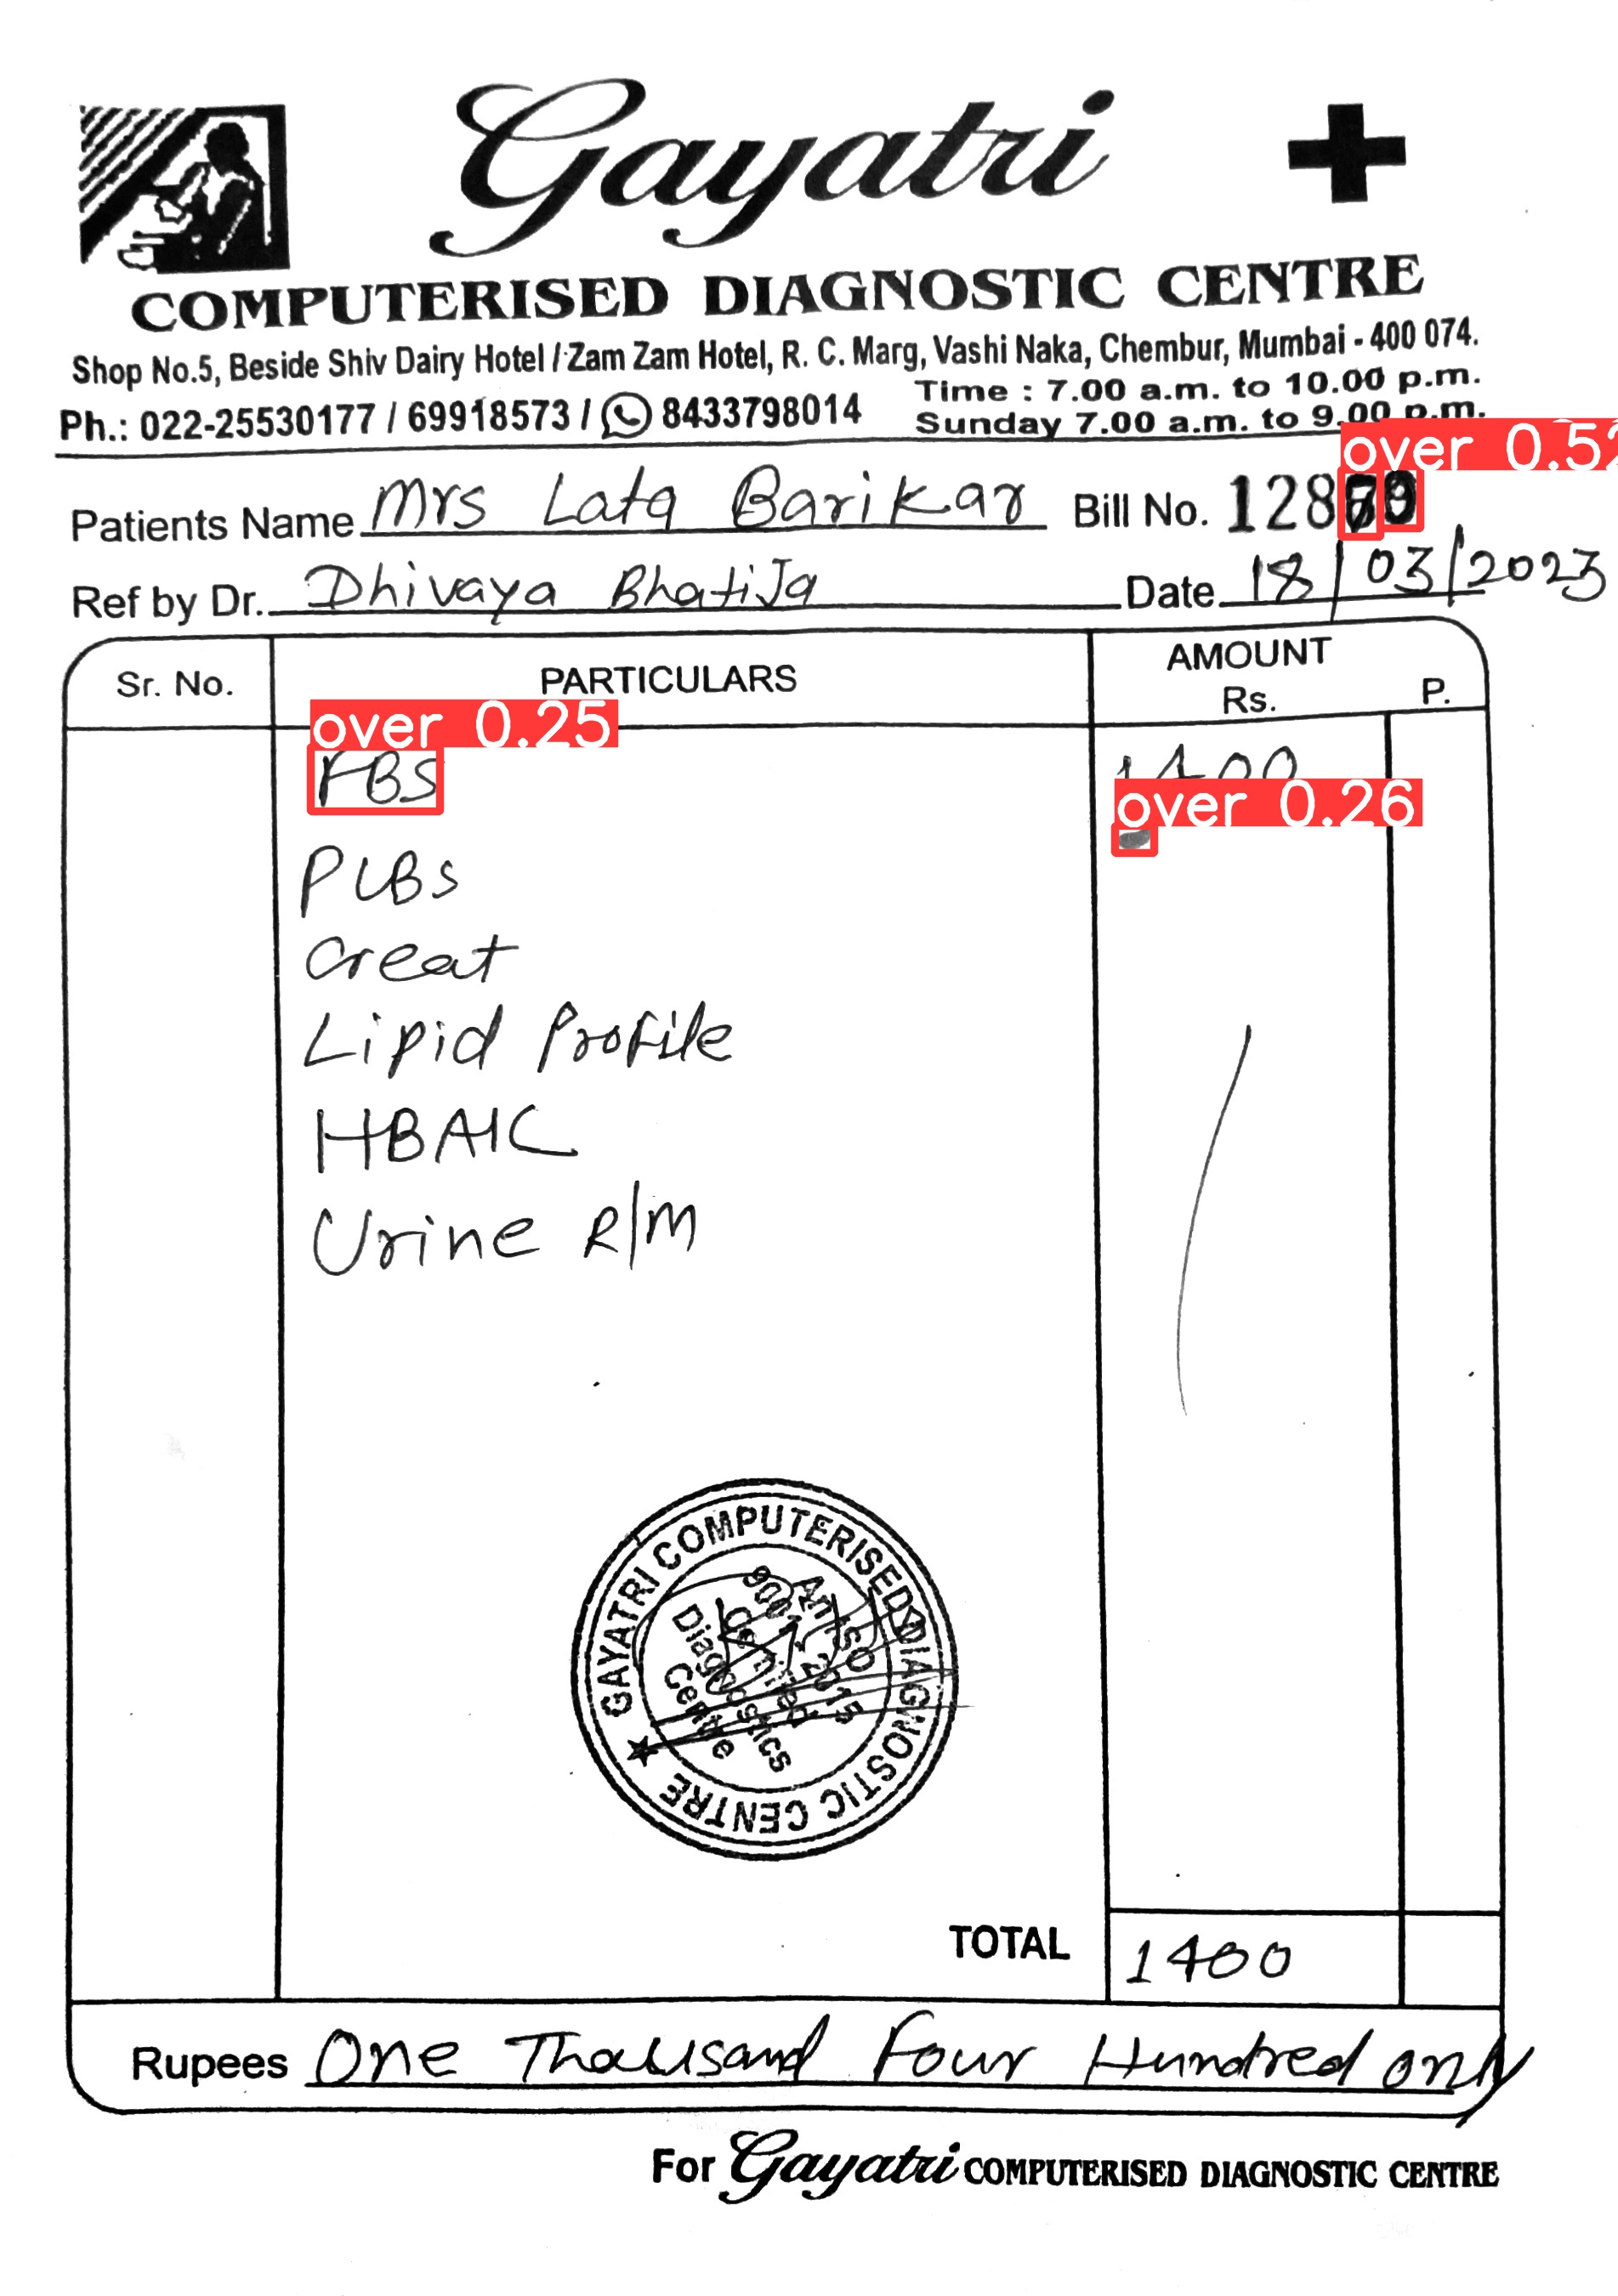 Gayatri
COMPUTERISED DIAGNOSTIC CENTRE
Shop No.5, Beside Shiv Dairy Hotel / Zam Zam Hotel, R. C. Marg, Vashi Naka, Chembur, Mumbai - 400 074.
Time : 7.00 a.m. to 10.00 p.m.
Ph.: 022-25530177 / 69918573 / 8433798014
Sunday 7.00 a.m. to 9.00 p.m.
over 0.52
Patients Name Mrs Lata Barikar Bill No.
Ref by Dr. Dhivaya Bhatija Date 18/03/2023
Sr. No. PARTICULARS AMOUNT Rs. P.
over 0.25
FBS 1400
over 0.26
PLBS
Creat
Lipid Profile
HBA1C
Urine R/M
GAYATRI COMPUTERISED DIAGNOSTIC CENTRE
An ISO
9001:2015
Certified
Diagnostics
Centre
TOTAL 1400
Rupees One Thousand Four Hundred only
For Gayatri COMPUTERISED DIAGNOSTIC CENTRE